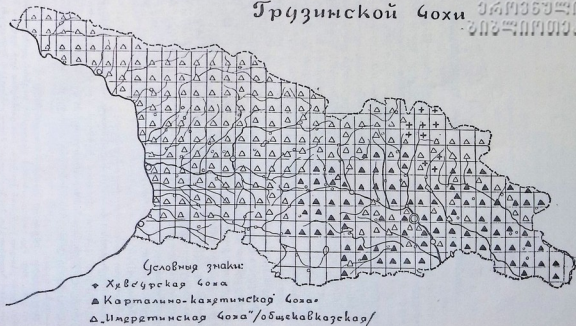 Грузинской чохи
ეროვნულ
ბიბლიოთე
Условные знаки:
Хевсурская чоха
Карталино-кахетинская чоха
„Имеретинская чоха"/общекавказская/